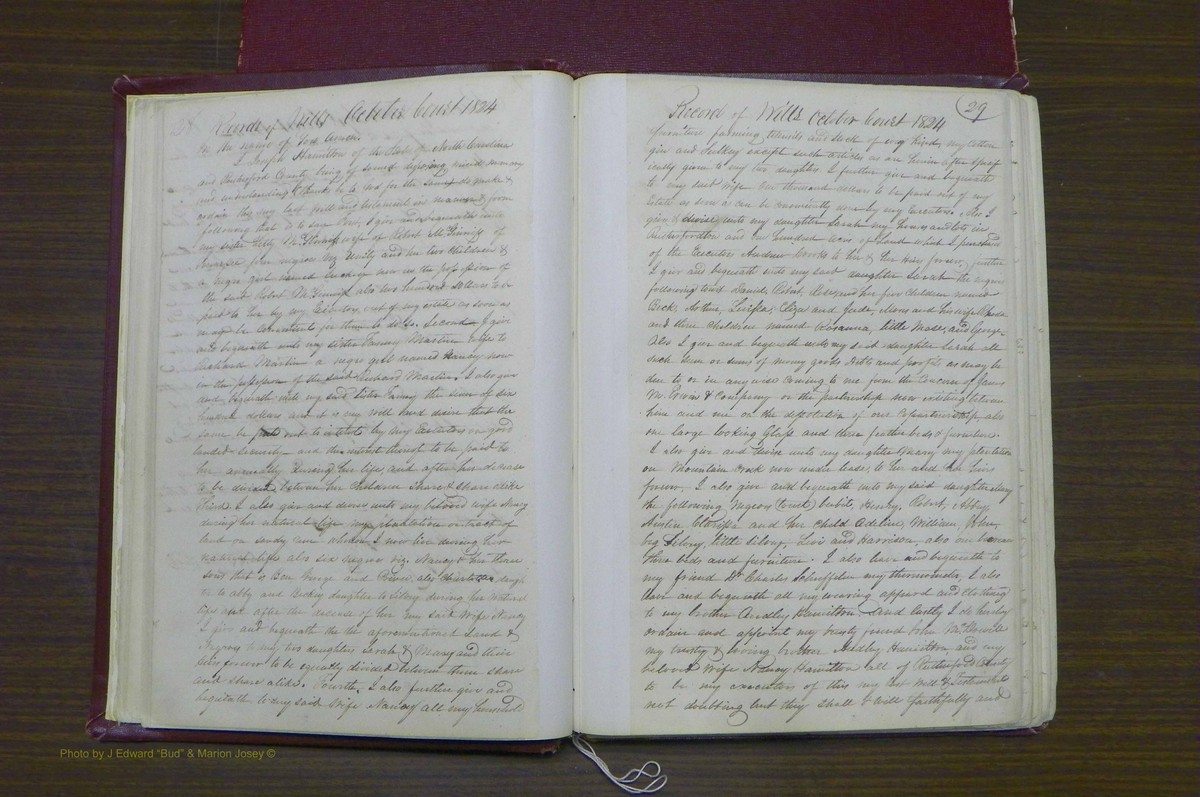 Record of Wills October Court 1824
In the name of God Amen.
I Joseph Hamilton of the State of North Carolina
and Rutherford County being of sound mind memory
and understanding thanks be to God for the same do make &
ordain this my last will and testament in manner & form
following that is to say First, I give and bequeath unto
my sister wife of Robert McGinnis of
four negroes viz and her two children &
a negro girl named now in the possession of
the said Robert McGinnis also two hundred dollars to be
paid to her by my Executors out of my estate as soon as
may be convenient for them to do so. Second I give
and bequeath unto my sister Nancy Martin wife to
Richard Martin a negro girl named Nancy now
in the possession of the said Richard Martin. I also give
and bequeath unto my said sister Nancy the sum of
hundred dollars and it is my will and desire that the
same be put out to interest by my Executors on good
landed security and the interest thereof to be paid to
her annually during her life and after her decease
to be divided between her children share & share alike
Third. I also give and devise unto my beloved wife Nancy
during her natural life my plantation or tract of
land on Sandy run whereon I now live during her
natural life also six negroes viz. Nancy & her three
sons that is Ben, George and also Charlotte daugh
ter to Abby and daughter to during her natural
life and after the decease of her my said wife Nancy
I give and bequeath the aforementioned Land &
Negroes to my two daughters Sarah & Mary and their
heirs forever to be equally divided between them share
and share alike. Fourth. I also further give and
bequeath to my said Wife Nancy all my household
29
Record of Wills October Court 1824
furniture farming utensils and stock of every kind, my cotton
gin and Sulkey except such articles as are herein after specif
ically given to my two daughters. I further give and bequeath
to my said wife one thousand dollars to be paid out of my
Estate as soon as can be conveniently done by my Executors. Also I
give & devise unto my daughter Sarah my house and lots in
Rutherfordton and one hundred acres of land which I purchased
of the Executors Andrew to her & her heirs forever, further
I give and bequeath unto my said daughter Sarah the negroes
following Daniel, Robert, and her five children named
Beck, Arthur, Eliza and Jude, Mons and his wife Rhoda
and three children named Rosanna, little Mose, and George
Also I give and bequeath unto my said daughter Sarah all
such sum or sums of money goods debts and profits as may be
due to or in any wise coming to me from the concern of James
& Company or the partnership now existing between
him and me or the of our Copartnership, also
one large looking Glass and three feather beds & furniture.
I also give and devise unto my daughter Mary my plantation
on Mountain Creek now under lease, to her and her heirs
forever. I also give and bequeath unto my said daughter Mary
the following Negroes Henry, Robert, Abby,
Austin, Clarissa and her child Adeline, William, John,
big little Levi and Harrison, also one bureau
three beds and furniture. I also leave and bequeath to
my friend Dr Charles my thermometer, I also
leave and bequeath all my wearing apparel and clothing
to my brother Audley Hamilton. And lastly I do hereby
ordain and appoint my trusty friend John
my trusty & loving brother Audley Hamilton, and my
beloved Wife Nancy Hamilton all of Rutherford County
to be my executors of this my last Will & Testament
not doubting but they shall & will faithfully and
Photo by J Edward "Bud" & Marion Josey ©